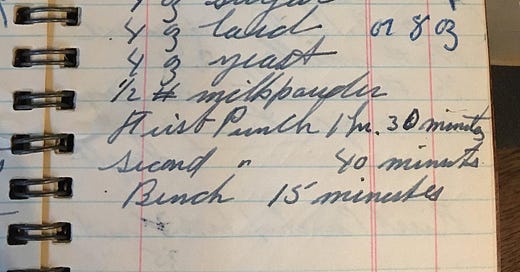 4 g sugar
4 g lard or 8 oz
4 g yeast
1/2 # milkpouder
First Punch 1 hr. 30 minutes
Second " 40 minuts
Bench 15 minutes